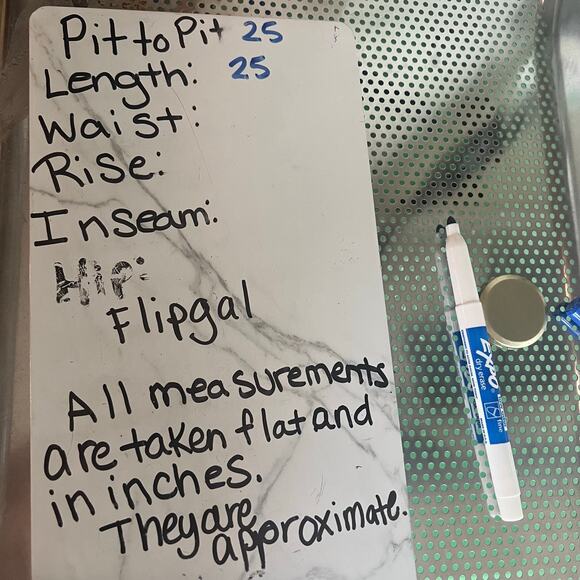 Pit to Pit 25
Length: 25
Waist:
Rise:
Inseam:
Hip:
Flipgal
All measurements
are taken flat and
in inches.
They are
approximate.
EXPO
dry erase